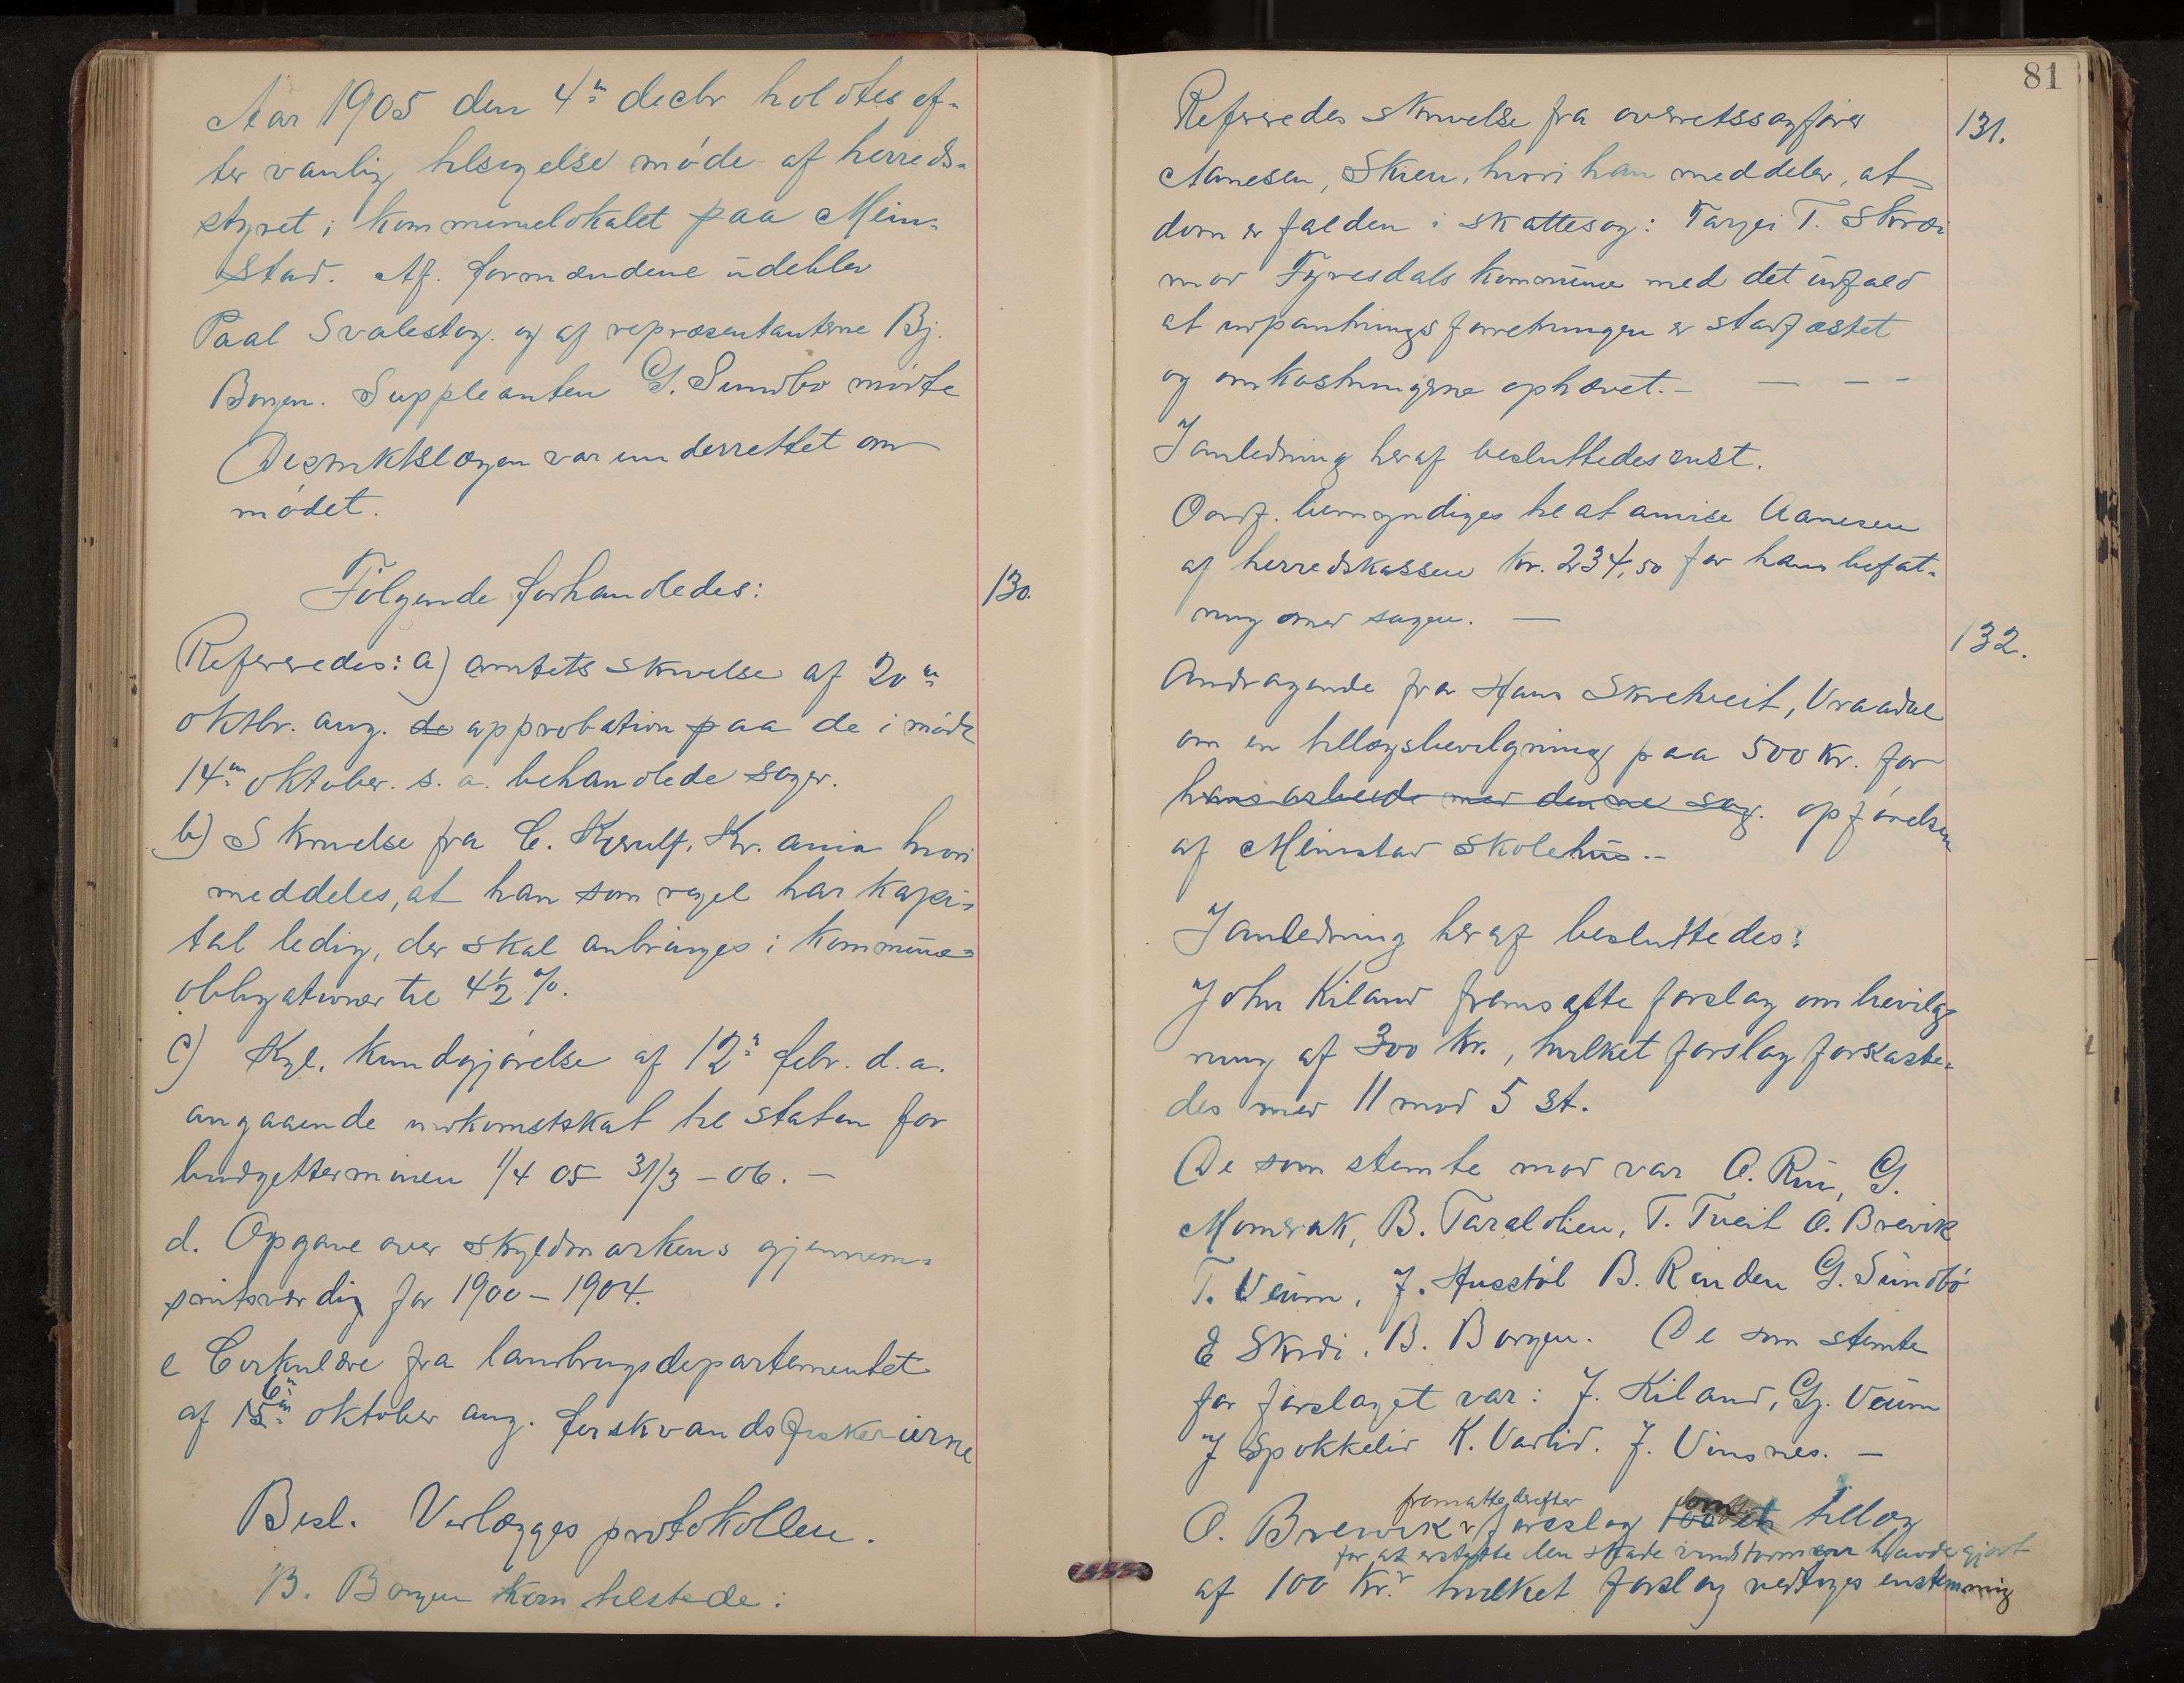 Aar 1905 den 4de decbr holdtes ef-
ter vanlig tilsigelse møde af herreds-
styret i kommunelokalet paa Mein-
stad. Af formændene udeblev
Paal Svalestog. og af repræsentanterne Bj.
Borgen. Suppleanten G. Sundbø mødte
Distriktslægen var underrettet om
mødet.
Følgende forhandledes:
130.
Refereredes: a) amtets skrivelse af 20de
oktbr. ang. de approbation paa de i møde
14de oktober. s. a. behandlede sager.
b) Skrivelse fra C. Kjerulf, Kr.ania hvori
meddeles, at han som regel har kapi-
tal ledig, der skal anbringes i kommune-
obligationer til 4½ %.
c) Kgl. kundgjørelse af 12te febr. d. a.
angaaende indkomstskat til staten for
budgetterminen 1/4 05 31/3 - 06. -
d. Opgave over skyldmarkens gjennem-
snitsværdig for 1900 - 1904.
e Cirkulære fra landbrugsdepartementet
af 16de oktober ang. ferskvandsfiskerierne
Besl. Vedlægges protokollen.
B. Borgen kom tilstede:
81
131.
Refereredes skrivelse fra overretssagfører
Aanesen, Skien, hvori han meddeler, at
dom er falden i skattesag: Targei T. Skræi
mod Fyresdals kommune med det udfald
at udpantningsforretningen er stadfæstet
og omkostningerne ophævet. - - - -
I anledning heraf besluttedes enst.
Ordf. bemyndiges til at anvise Aanesen
af herredskassen kr. 234,50 for hans befat-
ning med sagen. -
132.
Andragende fra Hans Skretveit, Vraadal
om en tillægsbevilgning paa 500 kr. for
hans arbeide med denne sag. opførelsen
af Meinstad skolehus. -
I anledning heraf besluttedes:
John Kiland fremsatte forslag om bevilg-
ning af 300 kr., hvilket forslag forkaste-
des med 11 mod 5 st.
De som stemte mod var O. Rui, G.
Momrak, B. Taraldlien, T. Tveit O. Brevik
T. Veum, J. Husstøl B. Rinden G. Sundbø
E Skrdi, B. Borgen. De som stemte
for forslaget var: J. Kiland, Gj. Veum
J Spokkelid K. Vadlid. J. Vinsnes. -
fremsatte derefter
O. Brevik forslag om et tillæg
for at erstatte den skade vindstormen havde gjort
af 100 kr. hvilket forslag vedtoges enstemmig